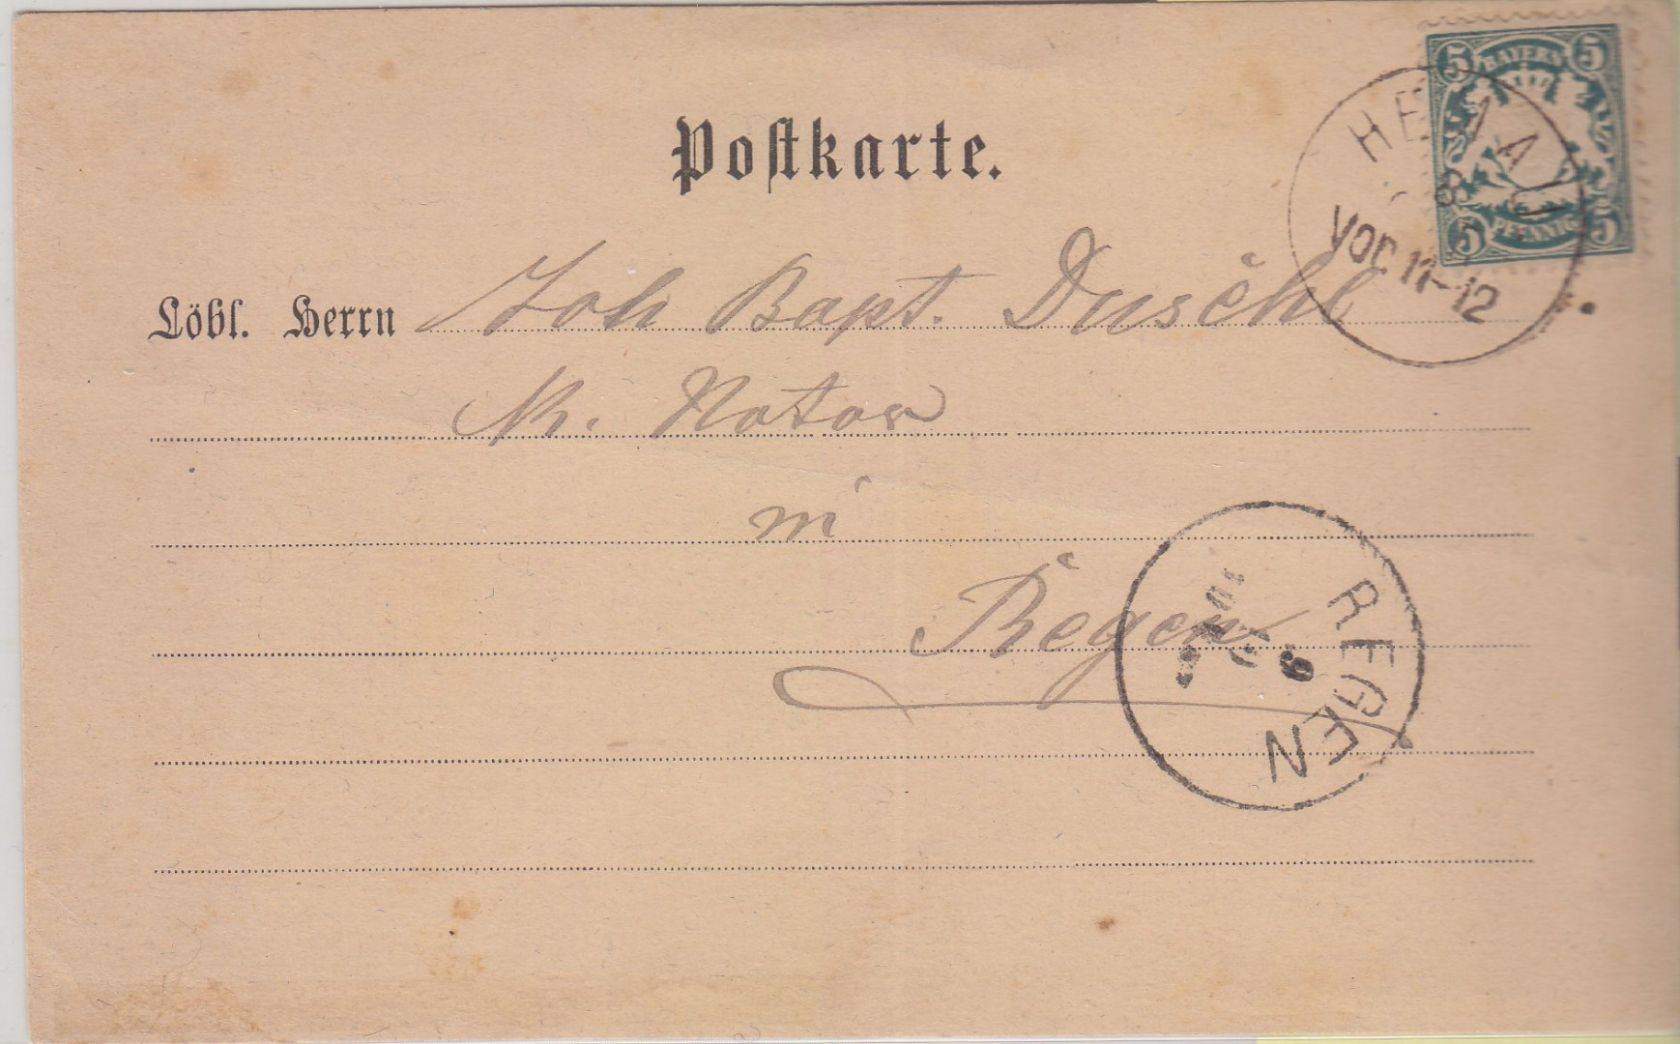 5 BAYERN 5
5 PFENNIG 5
HEMAU
8
VOR 11-12
Postkarte.
Löbl. Herrn Joh Bapt. Duschl
K. Notar
in
Regen
REGEN
6